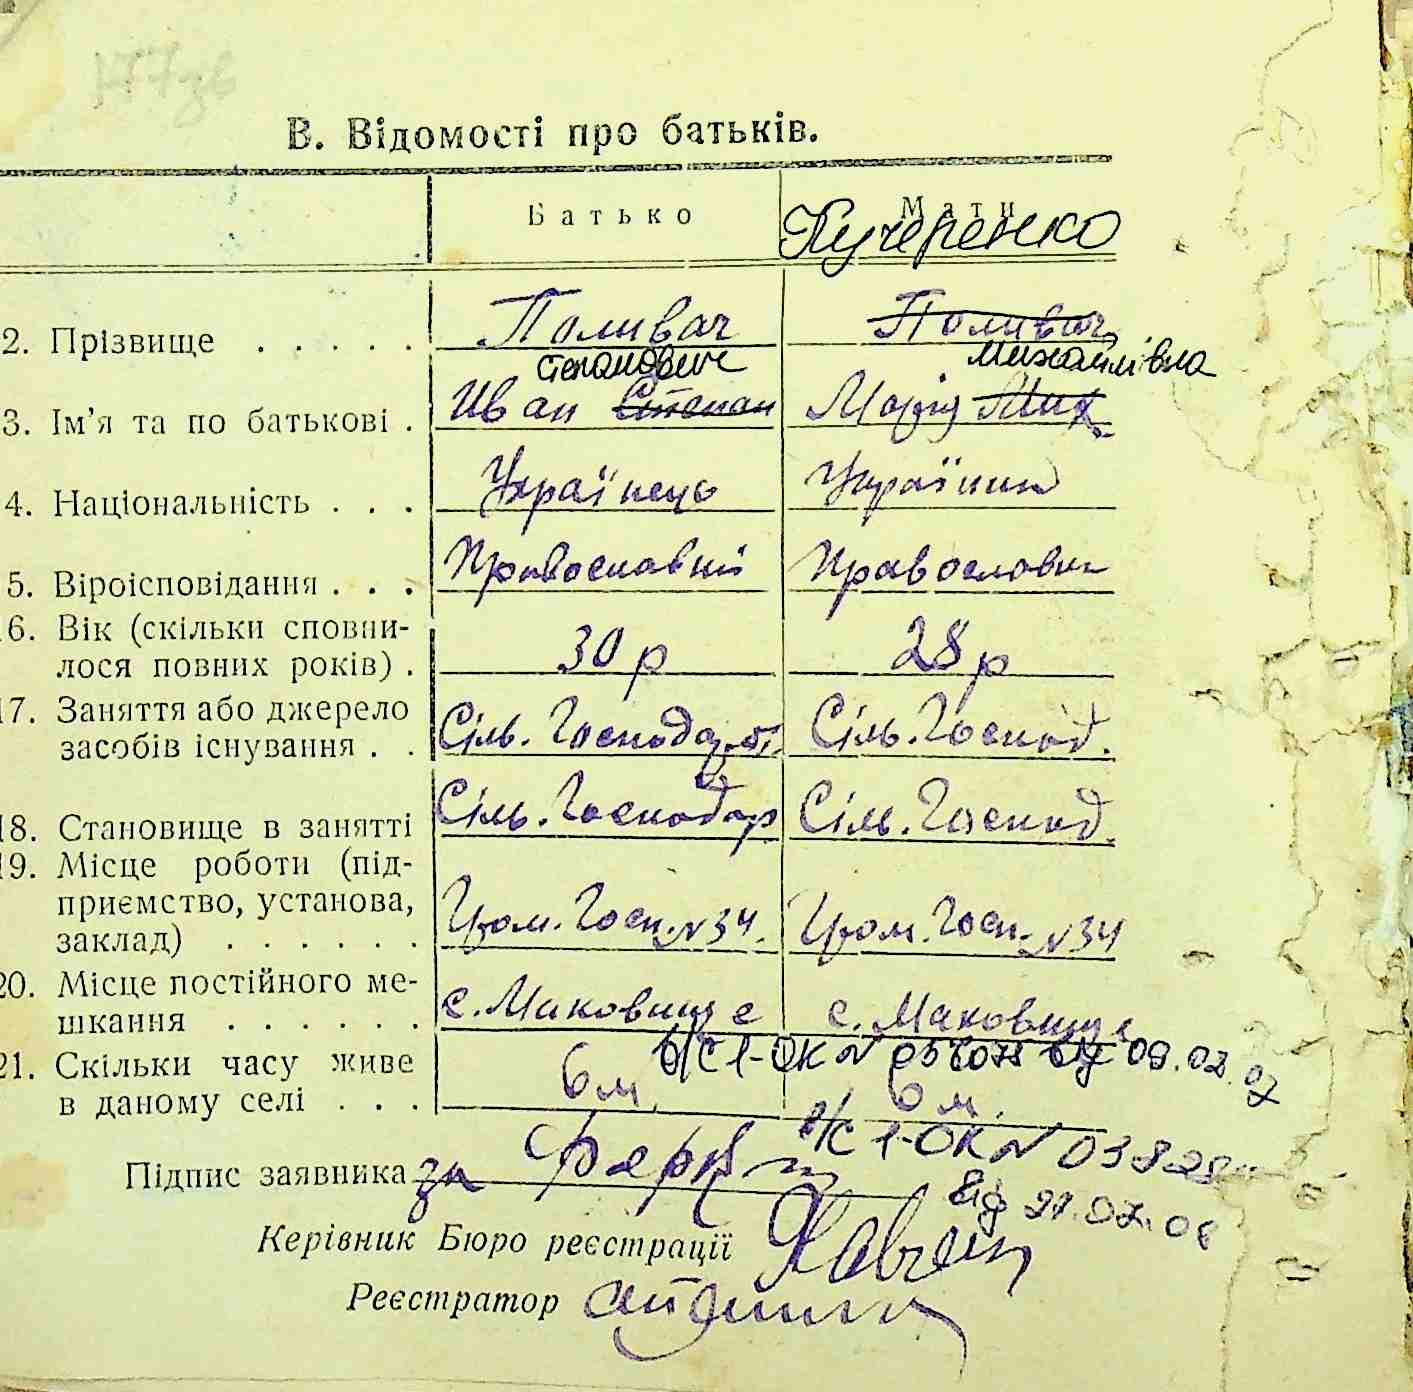 В. Відомості про батьків.
Батько Мати
Кучеренко
2. Прізвище . . . . . Поливач Поливач
степанович михайлівна
3. Ім'я та по батькові . Иван Степан Марія Мих
4. Національність . . . Українець Українка
5. Віроісповідання . . . Православній Православн
6. Вік (скільки сповни-
лося повних років) . 30 р 28 р
17. Заняття або джерело
засобів існування . . Сіль. Господар. Сіль. Господ.
18. Становище в занятті Сіль. Господар Сіль. Господ.
19. Місце роботи (під-
приємство, установа,
заклад) . . . . . . Гром. Госп. N 34. Гром. Госп. N 34
20. Місце постійного ме-
шкання . . . . . . с. Маковище с. Маковище
в/с 1-ОК N від 09.02.07
21. Скільки часу живе
в даному селі . . . 6 м. 6 м.
в/с 1-ОК N 03828
Підпис заявника за
від 21.02.08
Керівник Бюро реєстрації
Реєстратор